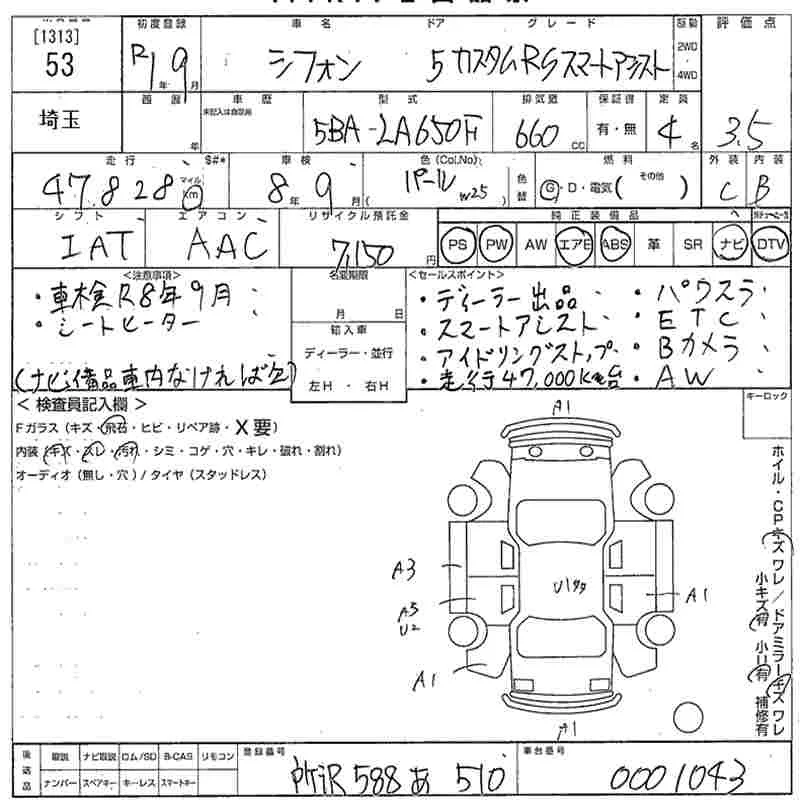 [1313]
53
初度登録
R1年9月
車名
シフォン
ドア
5
グレード
カスタムRSスマートアシスト
駆動
2WD
4WD
評価点
3.5
埼玉
西暦
年
車歴
未記入は自家用
型式
5BA-LA650F
排気量
660 CC
保証書
有・無
定員
4名
走行
47,828
マイル
Km
S#*
車検
8年9月
色(Col.No)
パール
( W25 )
色替
燃料
G・D・電気( その他 )
外装
C
内装
B
シフト
IAT
エアコン
AAC
リサイクル預託金
7,150円
純正装備品
PS PW AW エアB ABS 革 SR ナビ DTV
<注意事項>
・車検R8年9月
・シートヒーター
(ナビ備品車内なければ欠)
名変期限
月 日
輸入車
ディーラー・並行
左H・右H
<セールスポイント>
・ディーラー出品
・スマートアシスト
・アイドリングストップ
・走行47,000km台
・パワスラ
・ETC
・Bカメラ
・AW
< 検査員記入欄 >
Fガラス (キズ・飛石・ヒビ・リペア跡・X要)
内装 (キズ・スレ・汚れ・シミ・コゲ・穴・キレ・破れ・割れ)
オーディオ (無し・穴) / タイヤ (スタッドレス)
キーロック
A1
A3
A5
U2
U1タタ
A1
A1
A1
ホイル・CPキズ ワレ／ドアミラーキズ ワレ
小キズ有 小リ有 補修有
後送品
取説 ナビ取説 ロム/SD B-CAS リモコン
ナンバー スペアキー キーレス スマートキー
登録番号
所沢 588 あ 510
車台番号
0001043